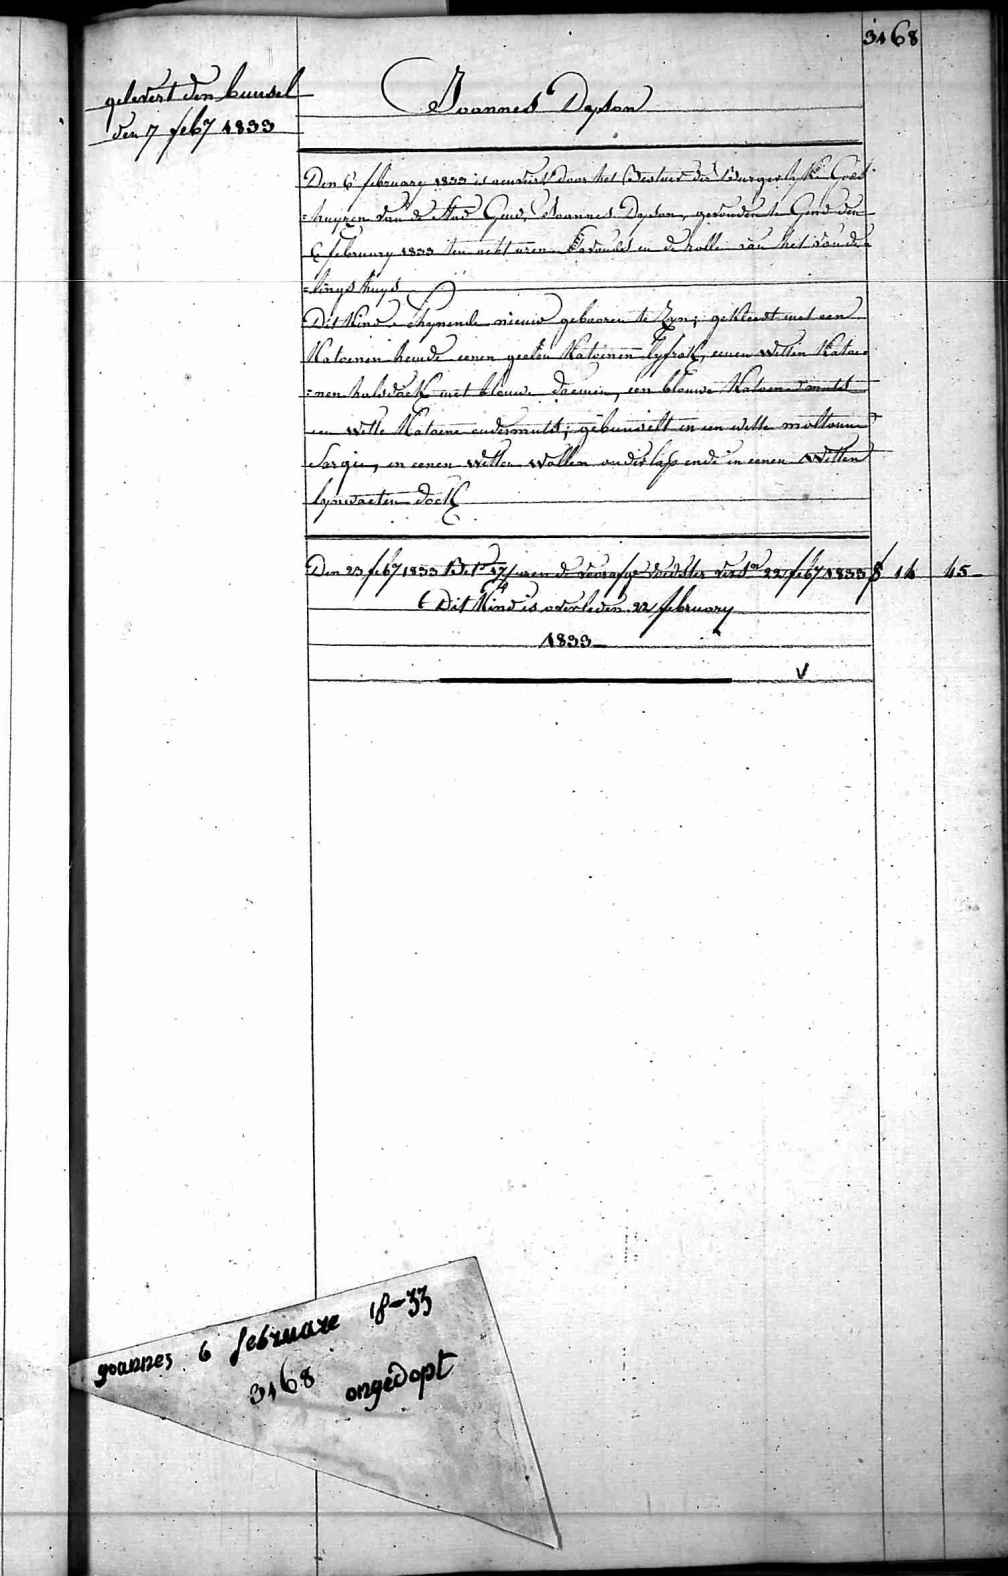 3168
gelevert den bunsel
den 7 feb<sup>y</sup> 1833
Joannes Depson
Den 6 february 1833 is aenveird door het Bestuer der Burgerlyke Godt
=huyzen van de Stad Gend, Joannes Depson, gevonden te Gend den
6 february 1833 ten acht uren s'avonds in de rolle van het vonde=
=lings huys
Dit Kind schynende nieuw gebooren te Zyn; gekleedt met een
Katoenen hemde eenen geelen Katoenen lyfrok, eenen witten Katoe=
=nen halsdoek met blouwe bloemen, een blouwe Katoene muts
een witte Katoene ondermuts; gebunselt in een witte moltonne
Sargie, en eenen witten wollen onderlap ende in eenen Witten
lynwaeten doek
Den 23 feb<sup>y</sup> 1833 22 feb<sup>y</sup> 1833 14 45
Dit Kind is overleden 22 february
1833
V
yoannes 6 februare 18-33
3168 ongedopt